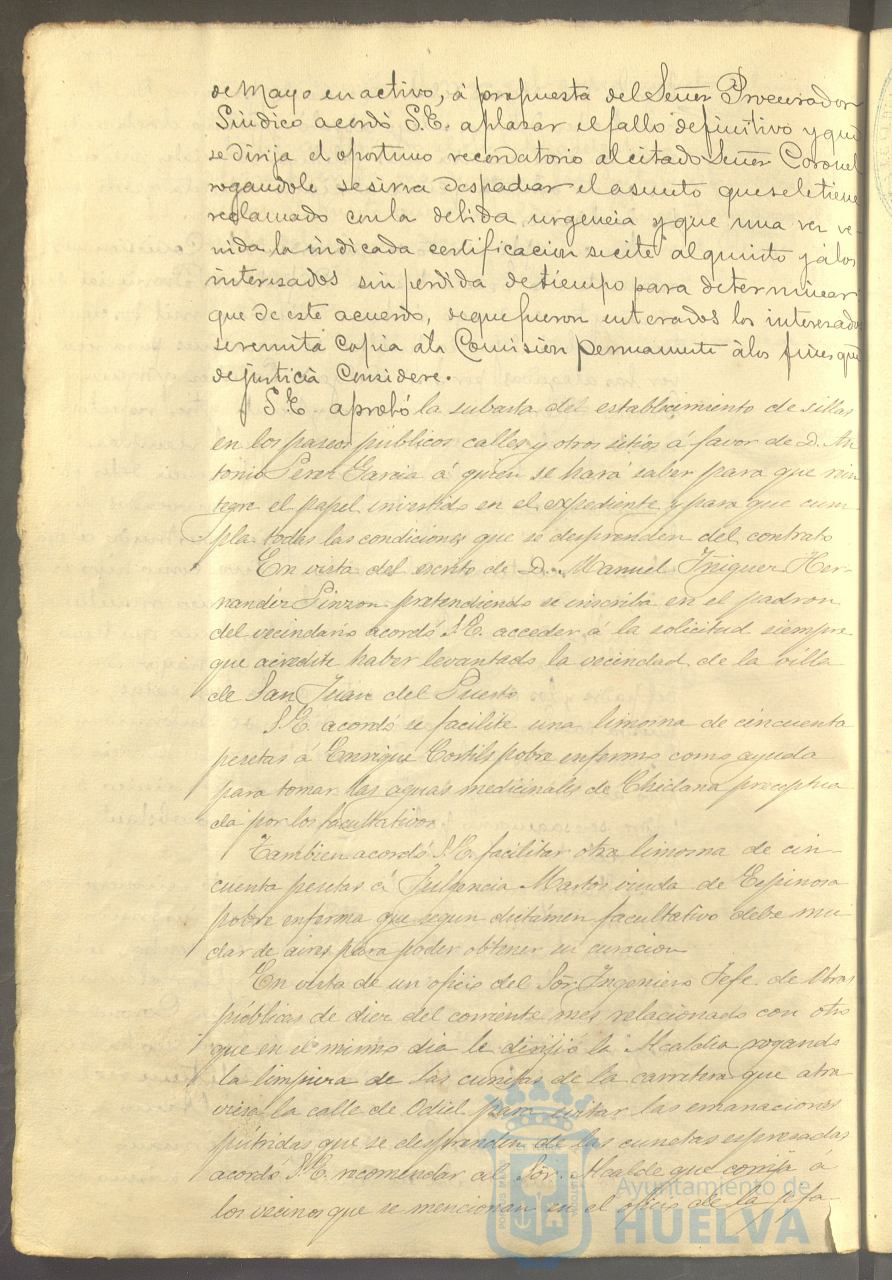 de Mayo en activo, á propuesta del Señor Procurador
Síndico acordó S.E. aplazar el fallo definitivo y que
se dirija el oportuno recordatorio al citado Señor Coronel
rogandole se sirva despachar el asunto que se le tiene
reclamado con la debida urgencia y que una vez ve-
nida la indicada certificacion se cite al quinto y á los
interesados sin perdida de tiempo para determinar
que de este acuerdo, de que fueron enterados los interesados
se remita copia á la Comisión permanente á los fines que
de justicia considere.
S.E. aprobó la subasta del establecimiento de sillas
en los paseos públicos calles y otros sitios á favor de D. An
tonio Perez Garcia á quien se hará saber para que rein
tegre el papel invertido en el expediente y para que cum
pla todas las condiciones que se desprenden del contrato
En vista del escrito de D. Manuel Iñiguez Her-
nandez Pinzon pretendiendo se inscriba en el padron
del vecindario acordó S.E. acceder á la solicitud siempre
que acredite haber levantado la vecindad de la villa
de San Juan del Puerto
S.E. acordó se facilite una limosna de cincuenta
pesetas á Enrique Cortils pobre enfermo como ayuda
para tomar las aguas medicinales de Chiclana preceptua
da por los facultativos.
Tambien acordó S.E. facilitar otra limosna de cin-
cuenta pesetas á Fulgencia Martos viuda de Espinosa
pobre enferma que segun dictámen facultativo debe mu-
dar de aires para poder obtener su curacion
En vista de un oficio del Sór. Ingeniero Jefe de Obras
públicas de diez del corriente mes relacionado con otro
que en el mismo dia le dirijió la Alcaldia rogando
la limpieza de las cunetas de la carretera que atra
viesa la calle de Odiel para evitar las emanaciones
pútridas que se desprenden de las cunetas espresadas
acordó S.E. recomendar al Sór. Alcalde que corrija á
los vecinos que se mencionan en el oficio de la Jefa-
Ayuntamiento de
HUELVA